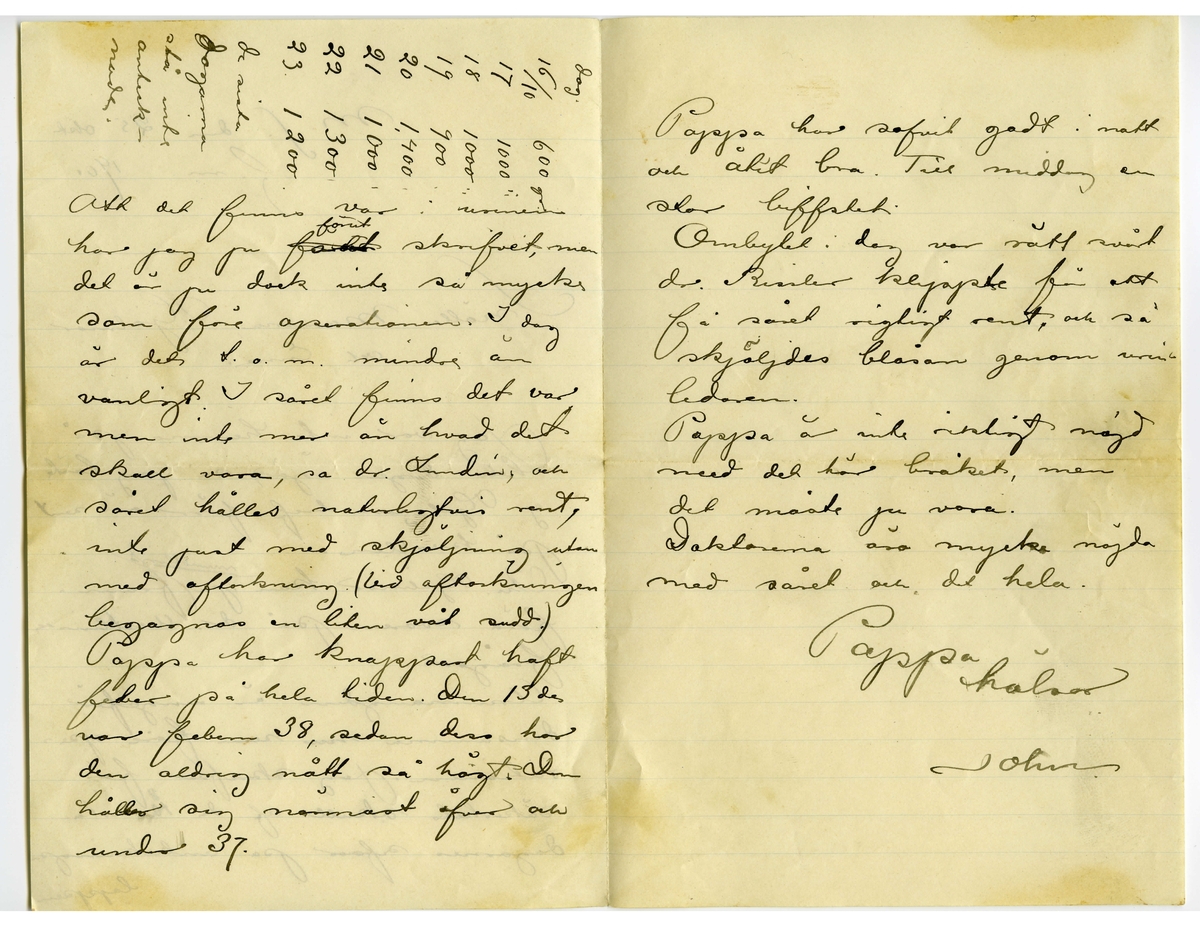 dag.
16/10 600 gr
17 1000 "
18 1000 "
19 900
20 1,400
21 1000
22 1300
23 1200
de sista
dagarna
stå inte
anteck-
nade.
Att det finns var i urinen
har jag ju förut skrifvit, men
det är ju dock inte så mycke
som före operationen. I dag
är det t. o. m. mindre än
vanligt. I såret finns det var
men inte mer än hvad det
skall vara, sa dr. Lundin, och
såret hålles naturligtvis rent,
inte just med sköljning utan
med aftorkning. (Vid aftorkningen
begagnas en liten våt sudd.)
Pappa har knappast haft
feber på hela tiden. Den 13de
var febern 38, sedan dess har
den aldrig nått så högt. Den
håller sig närmast öfver och
under 37.
Pappa har sofvit godt i natt
och ätit bra. Till middag en
stor biffstek.
Ombytet i dag var rätt svårt
dr. Risler klippte för att
få såret rigtigt rent, och så
skjöljdes blåsan genom urin-
ledaren.
Pappa är inte riktigt nöjd
med det här bråket, men
det måste ju vara.
Doktorerna äro mycke nöjda
med såret och det hela.
Pappa
hälsar
John.